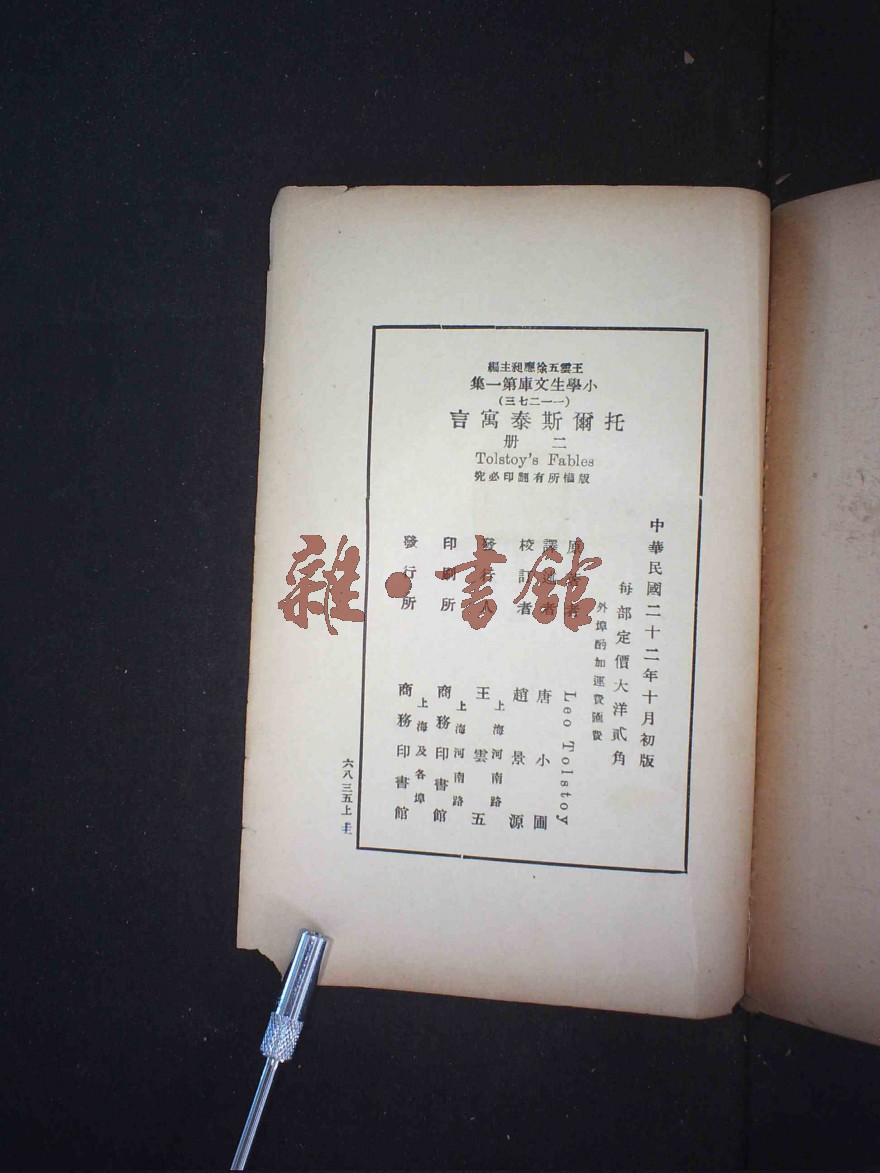 王雲五徐應昶主編
小學生文庫第一集
(一一二七三)
托爾斯泰寓言
二册
Tolstoy's Fables
版權所有翻印必究
中華民國二十二年十月初版
每部定價大洋貳角
外埠酌加運費匯費
原著者 Leo Tolstoy
譯述者 唐小圃
校訂者 趙景源
發行人 王雲五
上海河南路
印刷所 商務印書館
上海河南路
發行所 商務印書館
上海及各埠
六八三五上
雜·書館